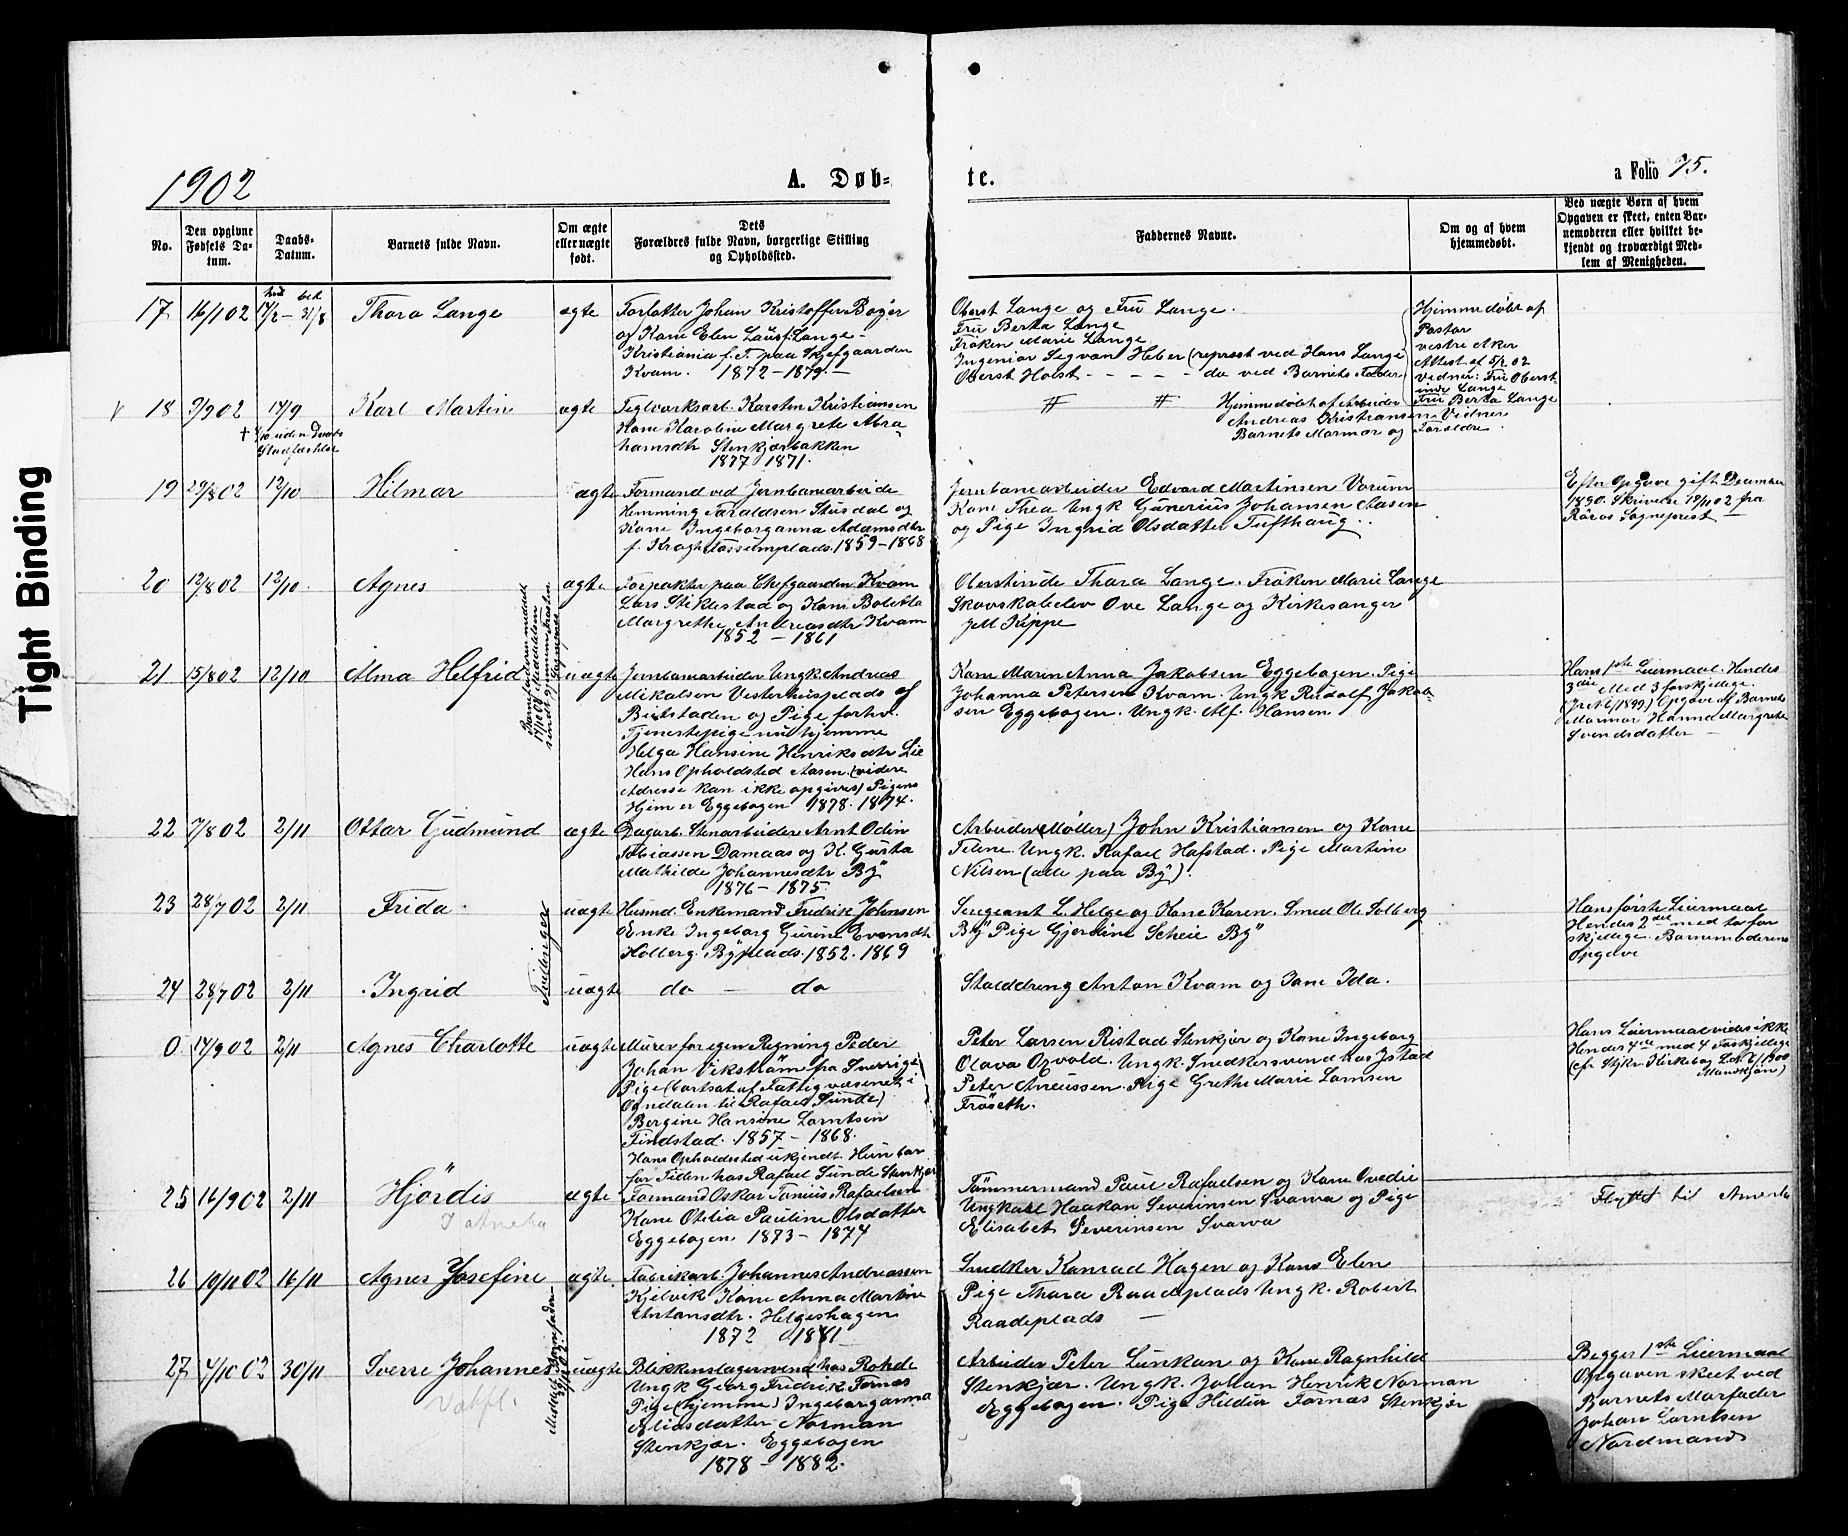 Tight Binding
1902
A. Døb-
te.
a Folio 75.
No.
Den opgivne
Fødsels Da-
tum.
Daabs-
Datum.
Barnets fulde Navn.
Om ægte
eller uægte
født.
Dets
Forældres fulde Navn, borgerlige Stilling
og Opholdssted.
Faddernes Navne.
Om og af hvem
hjemmedøbt.
Ved uægte Børn af hvem
Opgaven er skeet, enten Bar-
nemoderen eller hvilket be-
kjendt og troværdigt Med-
lem af Menigheden.
17 16/1 02
Thora Lange
ægte
Forfatter Johan Kristoffer Bojer
og Kone Elen Lange
Kristiania f. T. paa
Kvam. 1872 - 1879.
Oberst Lange og Fru Lange.
Fru Berta Lange
Frøken Marie Lange
Ingeniør Sigvart Heber (repræst ved Hans Lange)
Oberst Holst - - - - - do ved Barnets Fader
Hjemmedøbt af
Pastor
vestre Aker
Attest af 5/2 02
Vidner: Fru Oberst-
inde Lange
Fru Berta Lange
18 3/9 02 17/9
Karl Martin
ægte
Teglværksarb. Karsten Kristiansen
Kone Karoline Margrete Abra-
hamsdtr Stenkjærbakken
1877 1871.
Hjemmedøbt af Arbeider
Andreas Kristiansen. Vidner
Barnets Mormor og Forældre.
19 29/8 02 12/10
Hilmar
ægte
Formand ved Jernbanearbeide
Hemming Haraldsen
Kone Ingeborganna Adamsdtr
1859 - 1868
Jernbanearbeider Edvard Martinsen Vorum
Kone Thea Ungk Gunerius Johansen Aasen
og Pige Ingrid Olsdatter Tufthaug.
Efter Opgave gift December
1890. Skrivelse 19/11 02 fra
Røros Sogneprest
20 12/8 02 12/10
Agnes
ægte
Forpakter paa Chefgaarden Kvam
Lars Stiklestad og Kone Boletta
Margrethe Andreasdtr Kvam
1852 - 1861
Oberstinde Thora Lange. Frøken Marie Lange
Skovskabelev Ove Lange og Kirkesanger
JM Kippe
21 15/8 02 12/10
Alma Helfrid
uægte
Jernbanearbeider Ungk Andreas
Mikalsen Vesterhusplads af
Beitstaden og Pige forhv.
Tjenestepige nu hjemme
Helga Hansine Henriksdtr Lie
Hans Opholdsted Aasen (videre
Adresse kan ikke opgives) Pigens
Hjem er Eggebogen 1878. 1874.
Kone Maren Anna Jakobsen Eggebogen. Pige
Johanna Petersen Kvam. Ungk Rudolf Jakob-
sen Eggebogen. Ungk. Alf. Hansen
Hans 1ste Leiermaal. Hendes
3die Med 3 forskjellige.
Opgave af Barnets
Mormor Hanna Margrete
Svendsdatter
22 7/8 02 2/11
Ottar Gudmund
ægte
Dagarb. Stenarbeider Arnt Odin
Tobiassen Damaas og K. Gusta
Mathilde Johannesdtr By
1876 - 1875
Arbeider (Møller) John Kristiansen og Kone
Teline. Ungk. Rafael Hafstad. Pige Martine
Nilsen (alle paa By).
23 28/7 02 2/11
Frida
Tvillinger
uægte
Husmd. Enkemand Fredrik Johnsen
Enke Ingeborg Gurine Evensdtr
Holberg. Byplads. 1852. 1869
Sergeant L. Helge og Kone Karen. Smed Ole Solberg
By Pige Gjertine Scheie By
Hans første Leiermaal
Hendes 2det med to for-
skjellige. Barnemoderens
Opgave
24 28/7 02 2/11
Ingrid
uægte
do - do
Stalddreng Anton Kvam og Kone Ida.
0 14/9 02 2/11
Agnes Charlotte
uægte
Murer for egen Regning Peder
Johan Vikström fra Sverrige
Pige (bortsat af Fattigvæsenet i
Ogndalen til Rafael Sunde)
Bergine Hansine Larntsen
Findstad. 1857 - 1868.
Hans Opholdssted ukjendt. Hun bor
for Tiden hos Rafael Sunde Stenkjær
Peter Larsen Ristad Stenkjær og Kone Ingeborg
Olava Opvold. Ungk. Snedkersvend hos Ystad
Peter Aneussen. Pige Grethe Marie Larnsen
Frøseth.
Hans Leiermaal vides ikke
Hendes 4de med 4 Forskjellige
25 16/9 02 2/11
Hjördis
ægte
Formand Oskar Tonius Rafaelsen
Kone Otelia Pauline Olsdatter
Eggebogen 1873 - 1874
Tømmermand Paul Rafaelsen og Kone Ovedie
Ungkarl Haakon Severinsen Svarva og Pige
Elisabet Severinsen Svarva
Flyttet til Amerika
26 10/11 02 16/11
Agnes Josefine
ægte.
Fabrikarb. Johannes Andreassen
Kjelvik Kone Anna Martine
Antonsdtr. Helgeshagen
1872 1881
Snedker Konrad Hagen og Kone Elen
Pige Thora Raadeplads Ungk. Robert
Raadeplads
27 4/10 02 30/11
Sverre Johannes
uægte
Blikkenslagersvend hos Rohde
Ungk Georg Fredrik Fornæs
Pige (hjemme) Ingeborganna
Eliasdatter Norman
Stenkjær. Eggebogen
1878 - 1882.
Arbeider Peter Lunkan og Kone Ragnhild
Stenkjær. Ungk. Johan Henrik Norman
Eggebogen. Pige Hildur Fornæs Stenkjær
Begges 1ste Leiermaal
Opgaven skeet ved
Barnets Morfader
Johan Larntsen
Nordmand